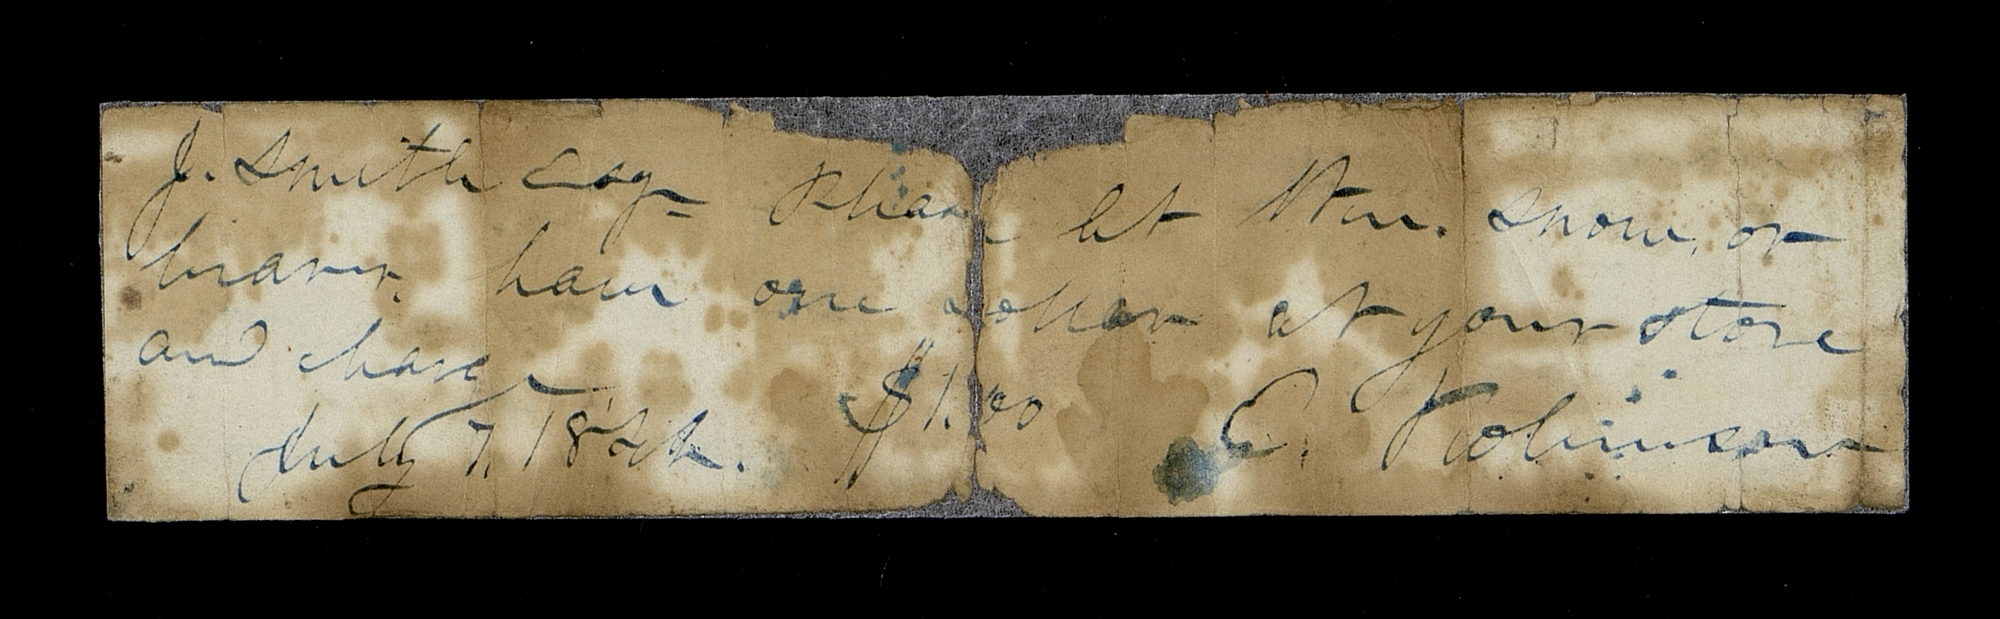 J. Smith Esq= Please let Wm. Snow, or
bearer, have one dollar at your store
and charge
July 7, 1842. $1.00 E. Robinson